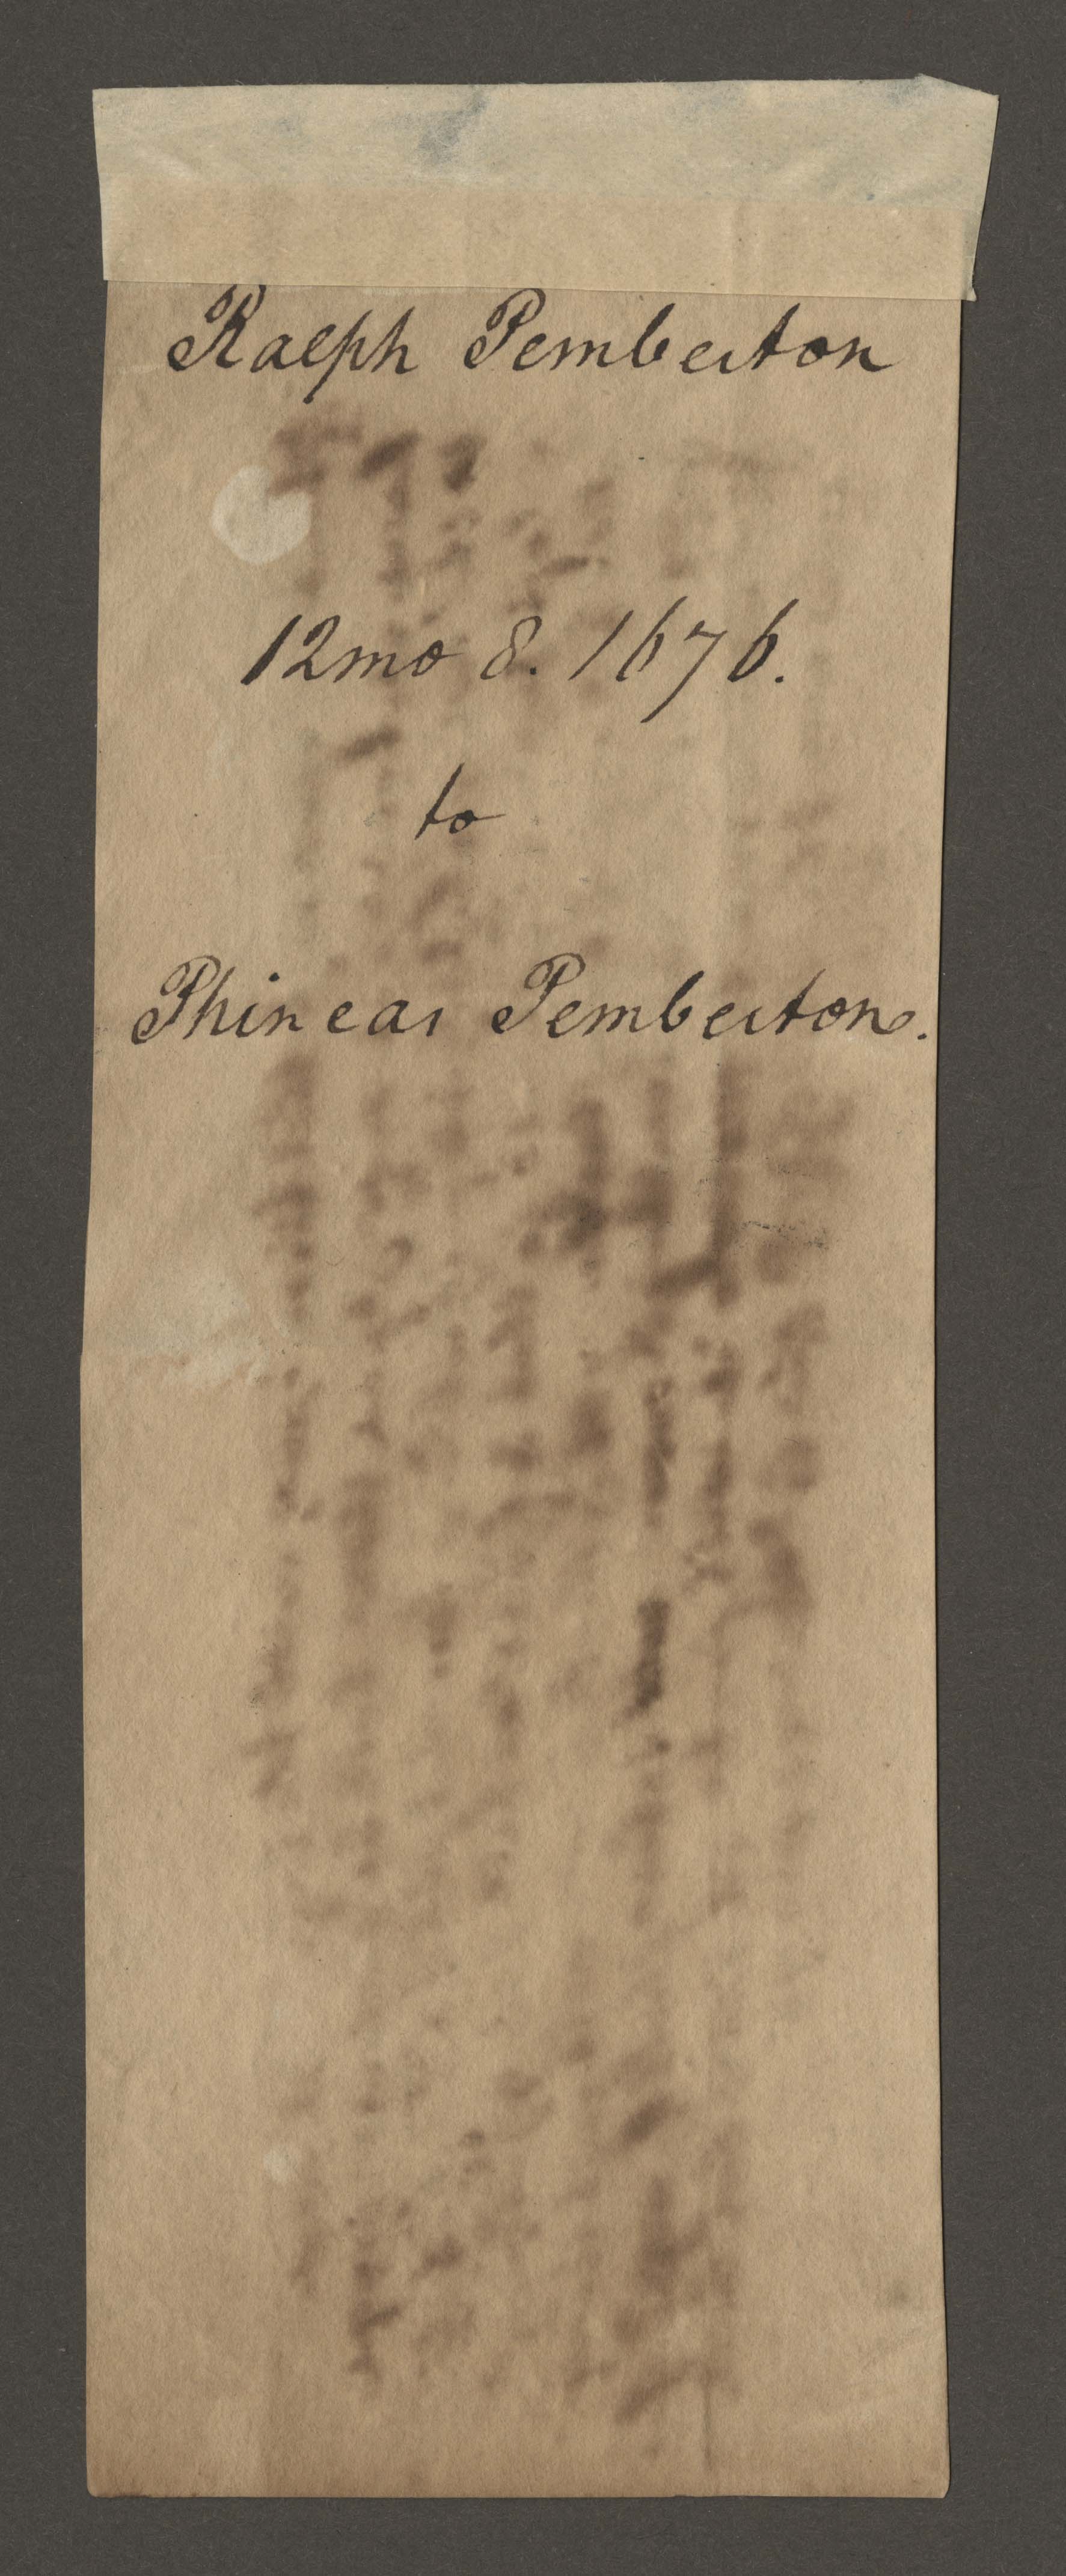 Ralph Pemberton
12mo 8. 1676.
to
Phineas Pemberton.